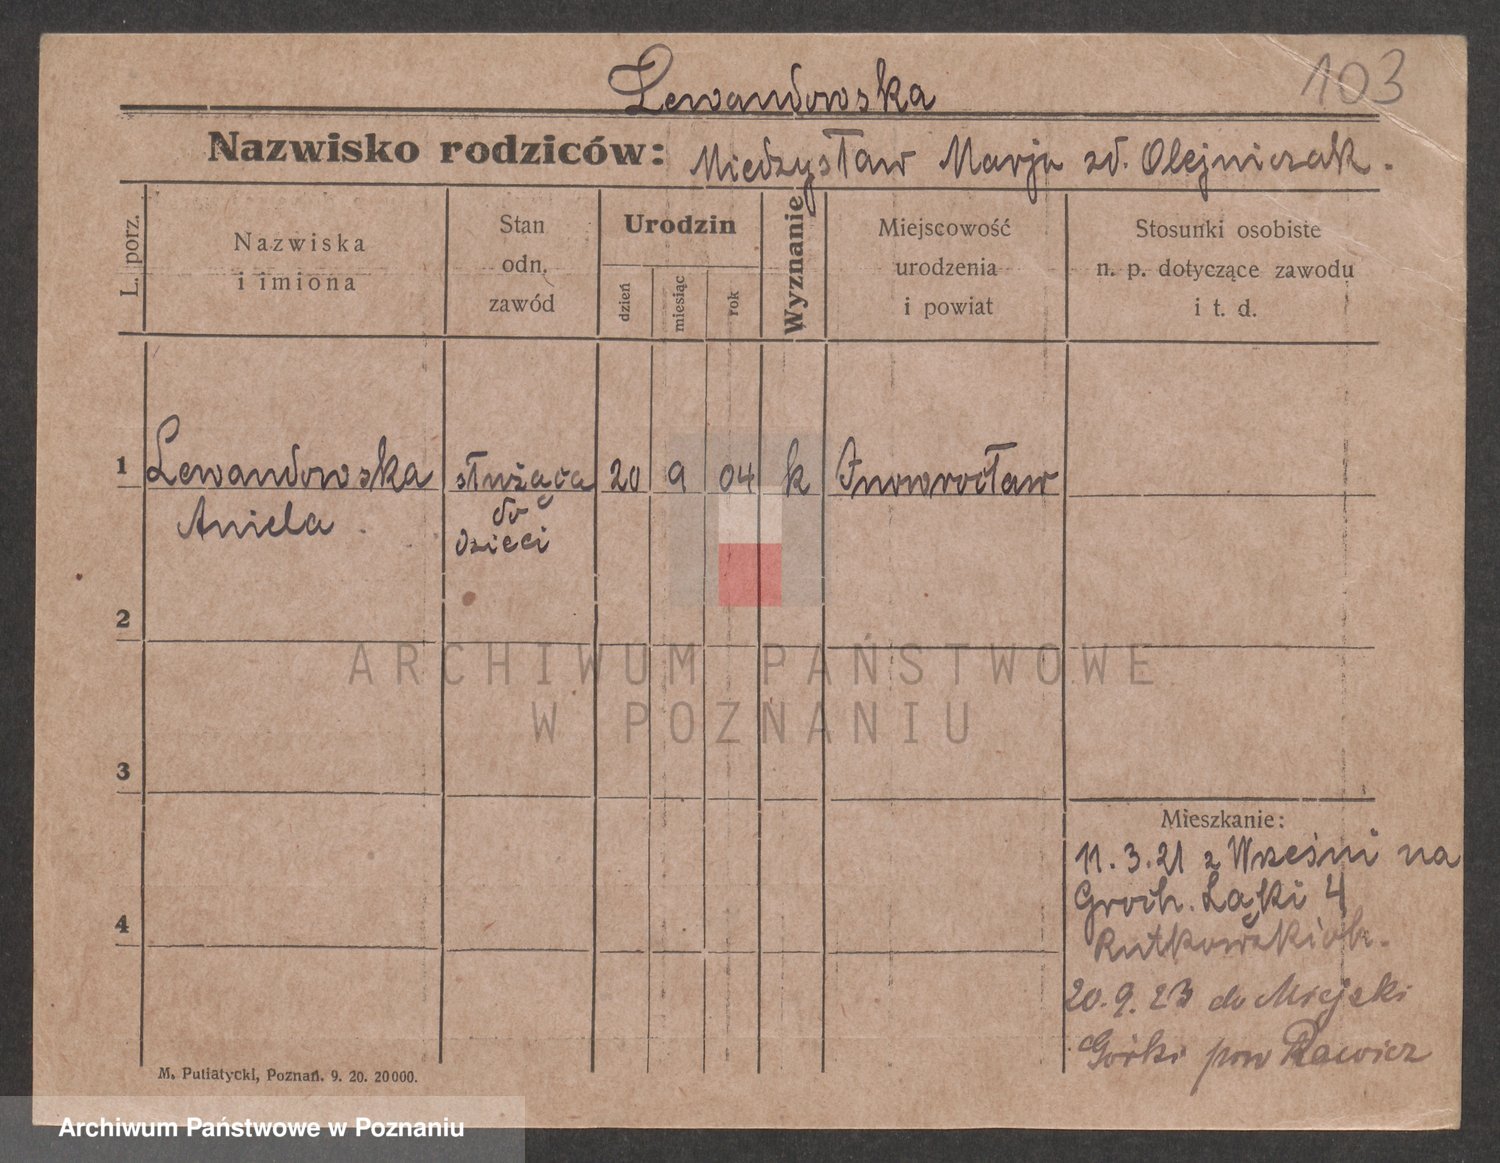 103
Lewandowska
Nazwisko rodziców: Miedzysław Marja zd. Olejniczak.
L. porz.
Nazwiska
i imiona
Stan
odn.
zawód
Urodzin
dzień
miesiąc
rok
Wyznanie
Miejscowość
urodzenia
i powiat
Stosunki osobiste
n. p. dotyczące zawodu
i t. d.
1 Lewandowska służąca 20 9 04 k Inowrocław
Aniela do
dzieci
2
ARCHIWUM PAŃSTWOWE
W POZNANIU
3
Mieszkanie:
11.3.21 z Wrześni na
Groch. Łąki 4
4
20.9.23 do Miejski
Górki pow Rawicz
M. Putiatycki, Poznań. 9. 20. 20000.
Archiwum Państwowe w Poznaniu